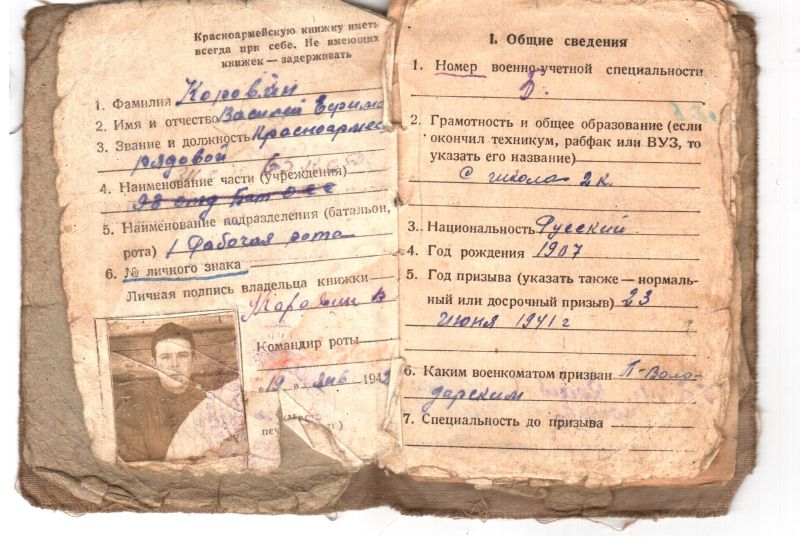 Красноармейскую книжку иметь
всегда при себе. Не имеющих
книжек — задерживать
1. Фамилия Коровин
2. Имя и отчество Василий Ефимо
3. Звание и должность Красноармеец
рядовой
4. Наименование части (учреждения)
5. Наименование подразделения (батальон,
рота) 1 Рабочая рота
6. № личного знака
Личная подпись владельца книжки
Коровин В
Командир роты
„19 „ янв 194
I. Общие сведения
1. Номер военно-учетной специальности
2. Грамотность и общее образование (если
окончил техникум, рабфак или ВУЗ, то
указать его название)
С школа 2 к.
3. Национальность Русский
4. Год рождения 1907
5. Год призыва (указать также — нормаль-
ный или досрочный призыв) 23
июня 1941 г
6. Каким военкоматом призван П-Воло-
дарским
7. Специальность до призыва